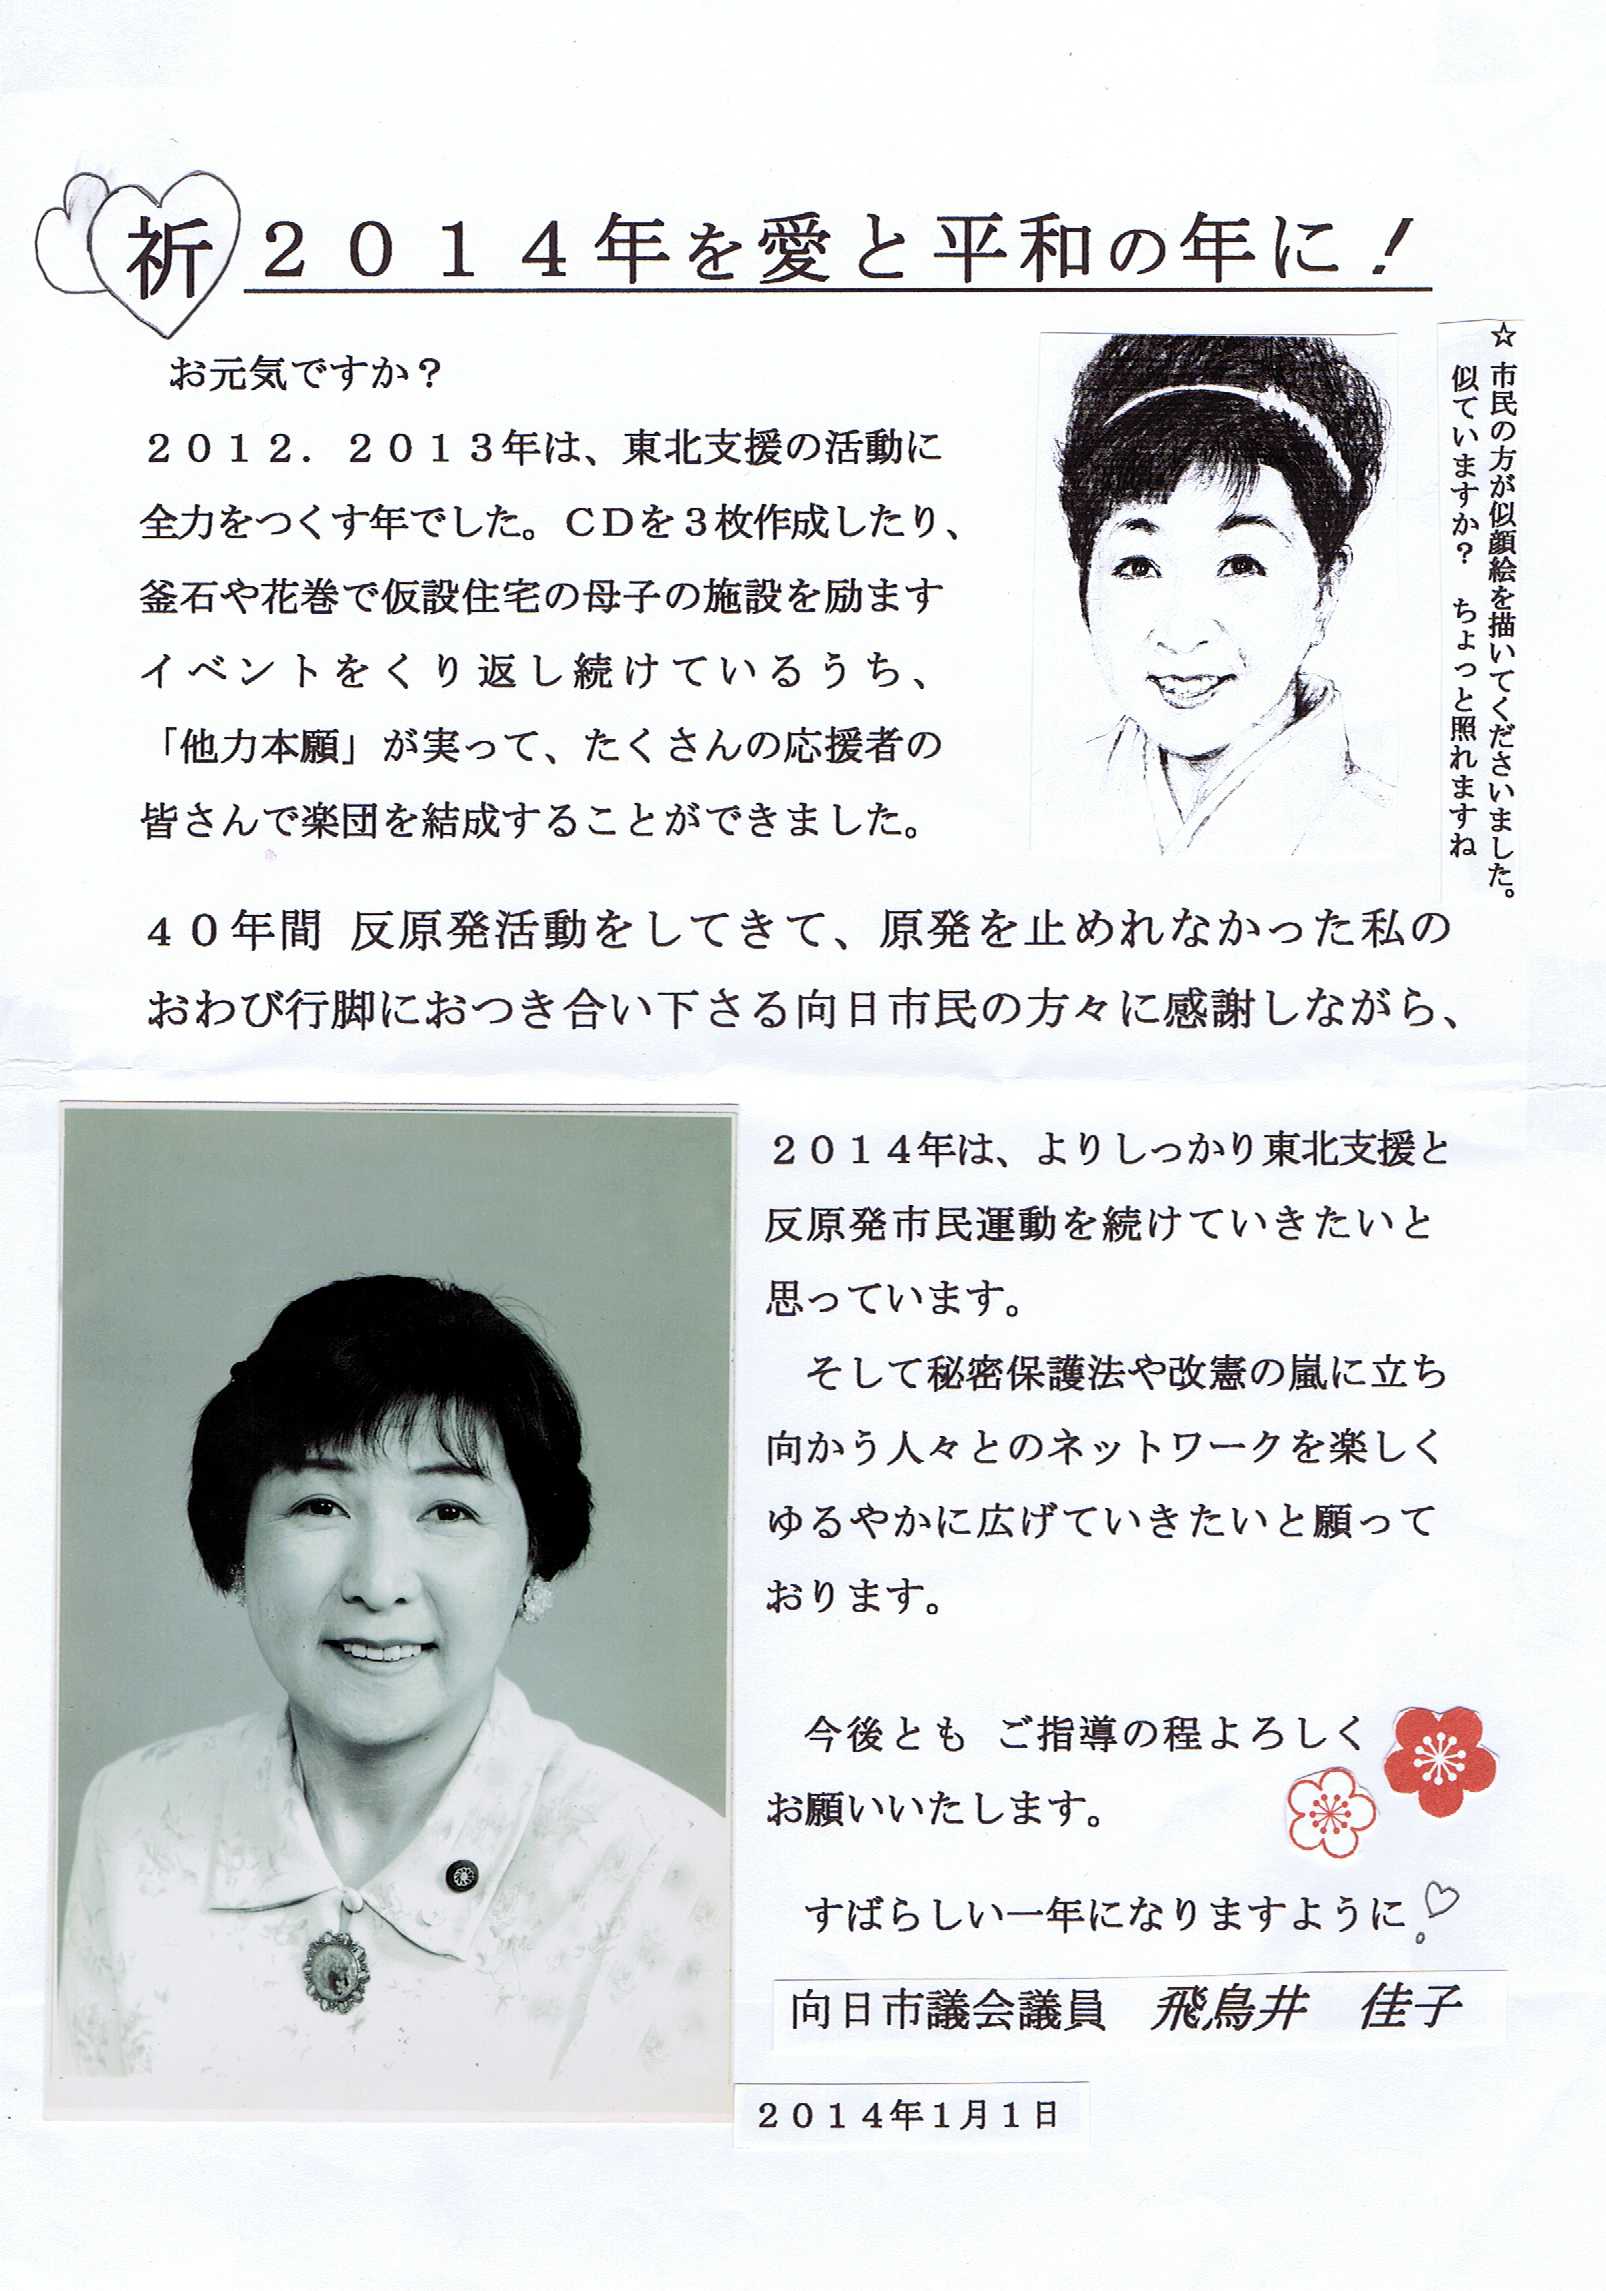 祈 2014年を愛と平和の年に!
お元気ですか?
2012.2013年は、東北支援の活動に
全力をつくす年でした。CDを3枚作成したり、
釜石や花巻で仮設住宅の母子の施設を励ます
イベントをくり返し続けているうち、
「他力本願」が実って、たくさんの応援者の
皆さんで楽団を結成することができました。
☆市民の方が似顔絵を描いてくださいました。
似ていますか? ちょっと照れますね
40年間 反原発活動をしてきて、原発を止めれなかった私の
おわび行脚におつき合い下さる向日市民の方々に感謝しながら、
2014年は、よりしっかり東北支援と
反原発市民運動を続けていきたいと
思っています。
そして秘密保護法や改憲の嵐に立ち
向かう人々とのネットワークを楽しく
ゆるやかに広げていきたいと願って
おります。
今後とも ご指導の程よろしく
お願いいたします。
すばらしい一年になりますように。
向日市議会議員 飛鳥井 佳子
2014年1月1日